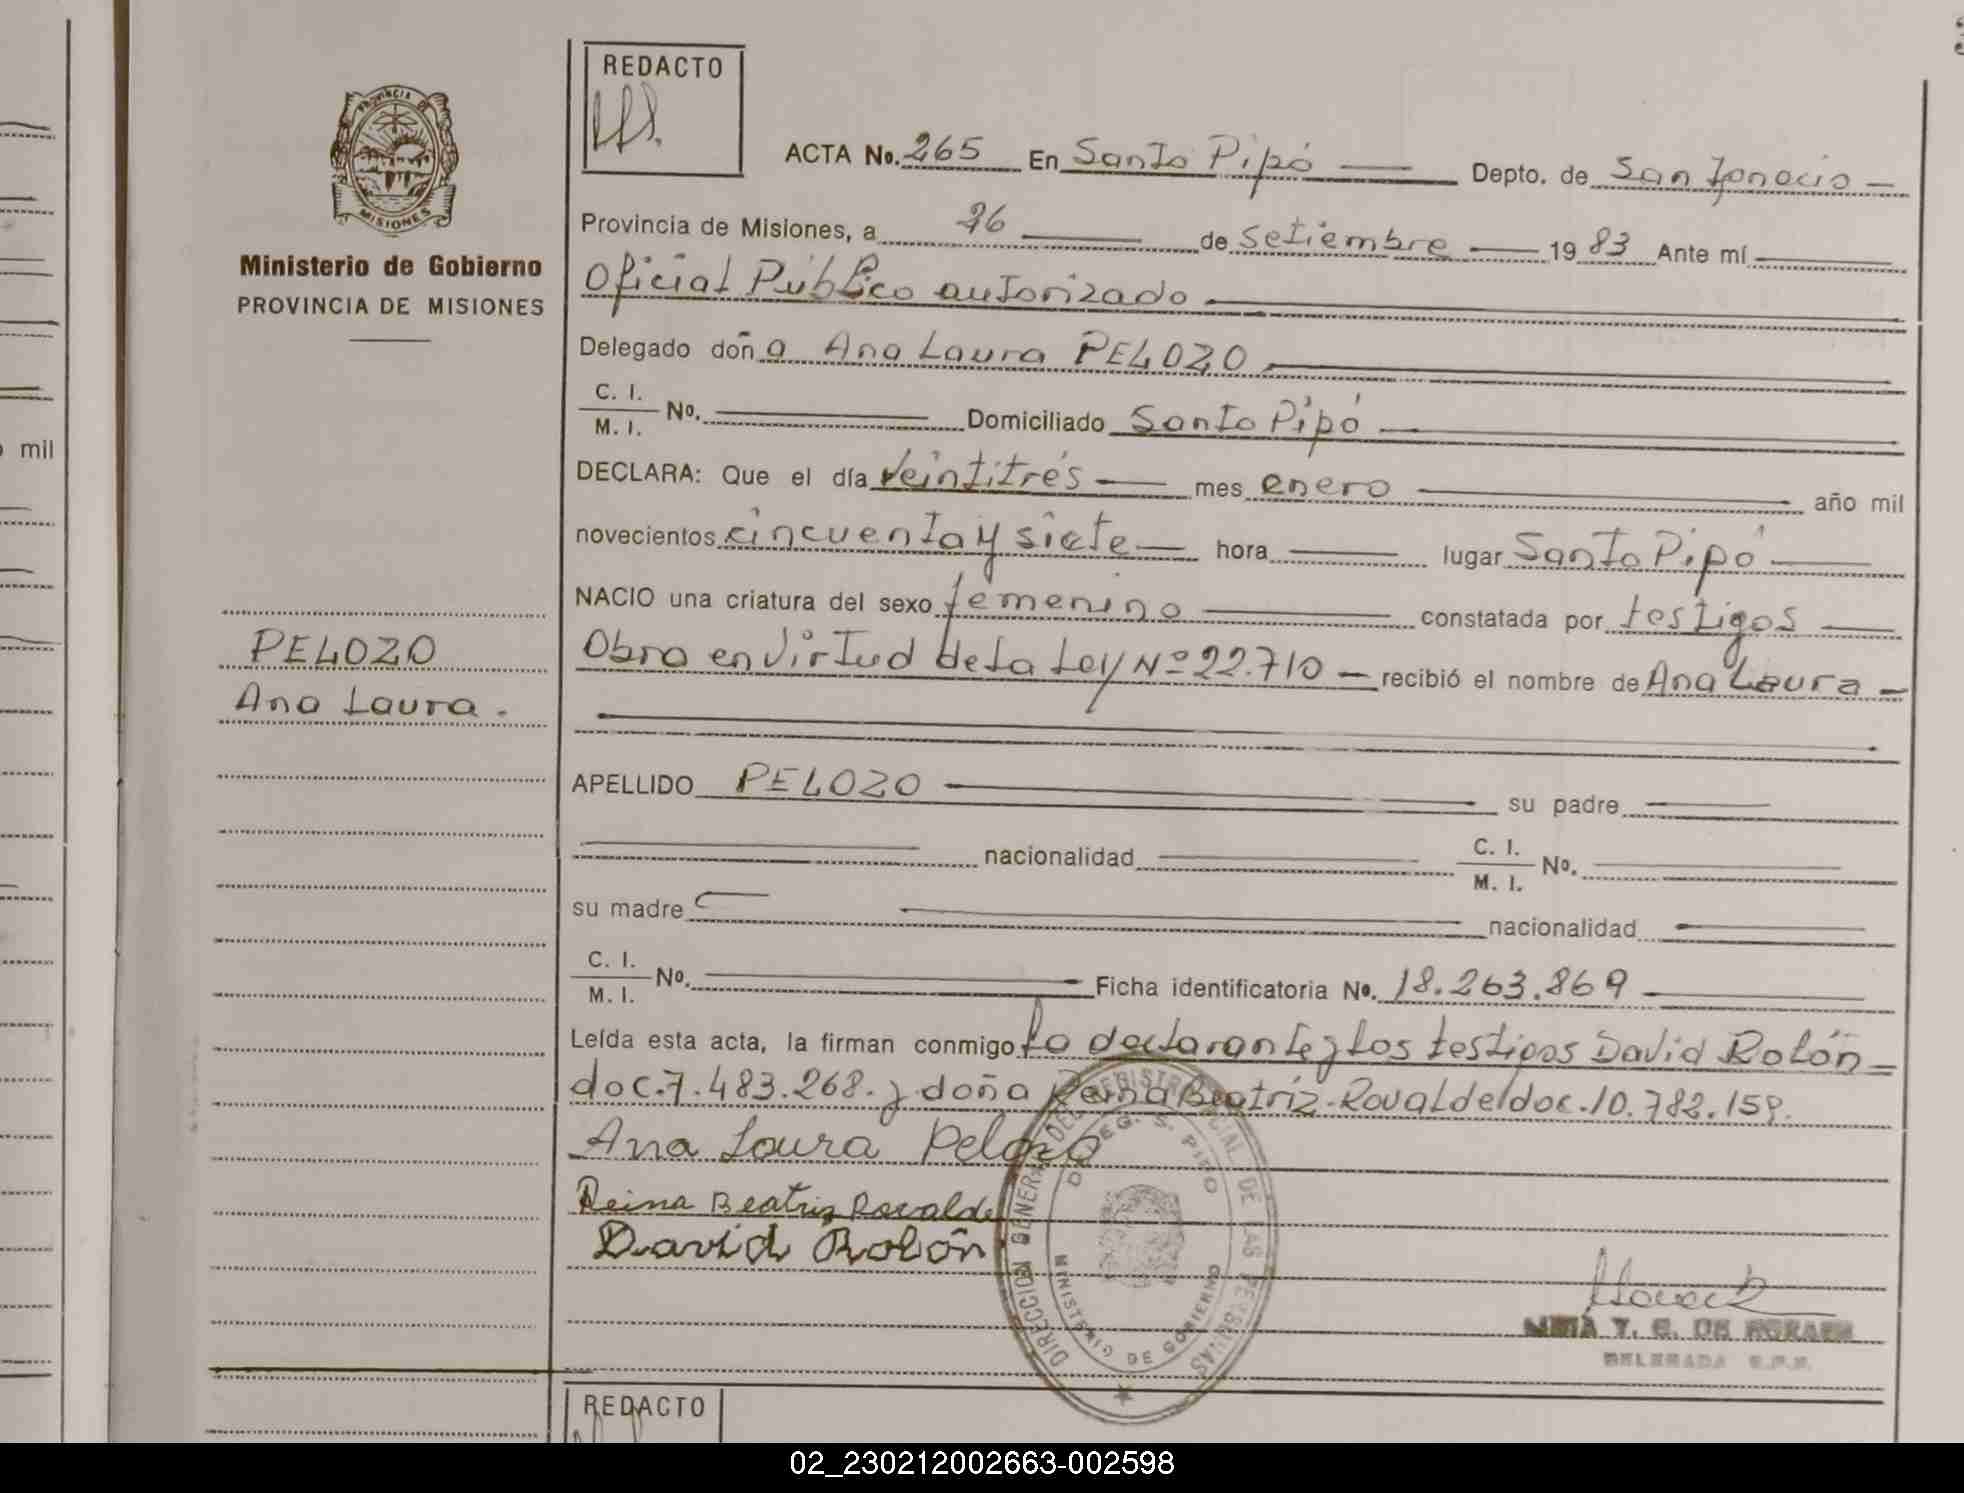 REDACTO
PROVINCIA DE MISIONES
Ministerio de Gobierno
PROVINCIA DE MISIONES
ACTA No. 265 En Santo Pipó Depto. de San Ignacio
Provincia de Misiones, a 26 de Setiembre 1983 Ante mí
Oficial Público autorizado
Delegado doña Ana Laura PELOZO
C. I.
M. I. No. Domiciliado Santo Pipó
DECLARA: Que el día veintitrés mes enero año mil
novecientos cincuenta y siete hora lugar Santo Pipó
NACIO una criatura del sexo femenino constatada por testigos
Obra en virtud de la Ley Nº 22.710 recibió el nombre de Ana Laura
PELOZO
Ana Laura.
APELLIDO PELOZO su padre
nacionalidad C. I.
M. I. No.
su madre nacionalidad
C. I.
M. I. No. Ficha identificatoria No. 18.263.869
Leída esta acta, la firman conmigo la declarante y los testigos David Rolón
doc. 7.483.268. y doña Reina Beatriz Rovalde/doc. 10.782.159.
Ana Laura Pelozo
Reina Beatriz Rovalde
David Rolón
DIRECCION GENERAL DEL REGISTRO PROVINCIAL DE LAS PERSONAS
DELEG. S. PIPO
MINISTERIO DE GOBIERNO
DELEGADA
REDACTO
mil
02_230212002663-002598